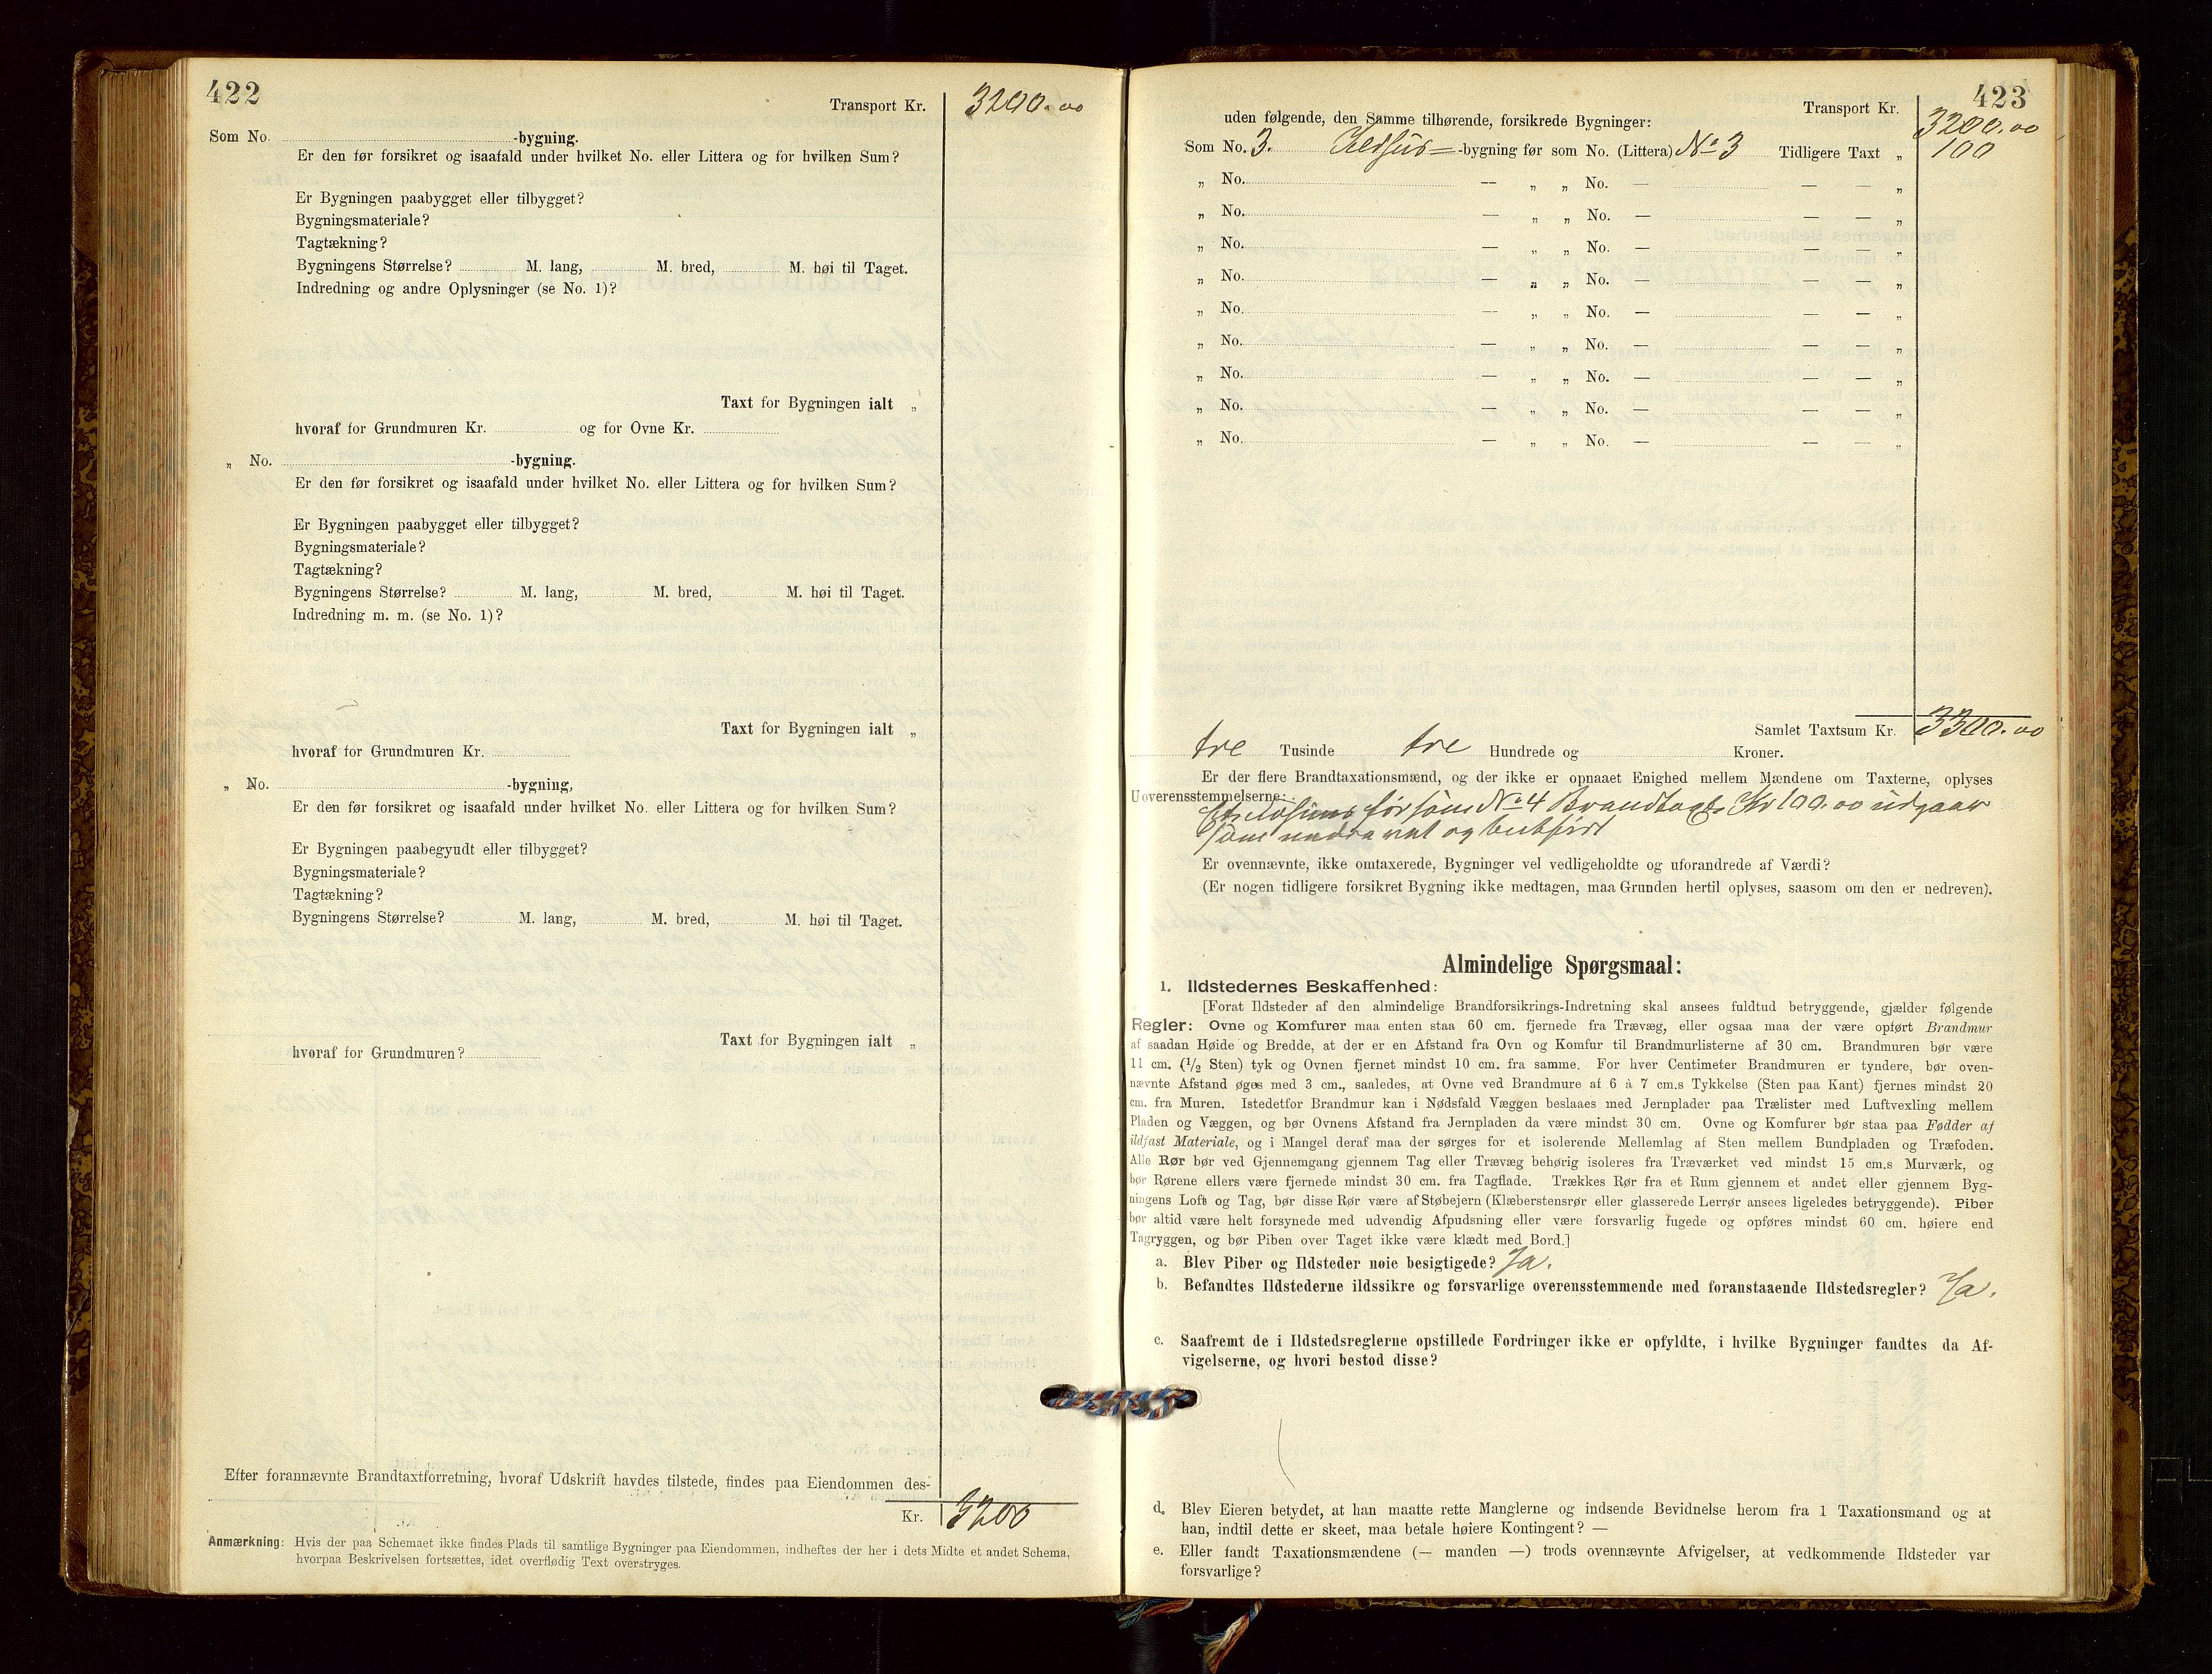 422
Transport Kr. 3200.00
Som No. -bygning.
Er den før forsikret og isaafald under hvilket No. eller Littera og for hvilken Sum?
Er Bygningen paabygget eller tilbygget?
Bygningsmateriale?
Tagtækning?
Bygningens Størrelse? M. lang, M. bred, M. høi til Taget.
Indredning og andre Oplysninger (se No. 1)?
Taxt for Bygningen ialt „
hvoraf for Grundmuren Kr. og for Ovne Kr.
„ No. -bygning.
Er den før forsikret og isaafald under hvilket No. eller Littera og for hvilken Sum?
Er Bygningen paabygget eller tilbygget?
Bygningsmateriale?
Tagtækning?
Bygningens Størrelse? M. lang, M. bred, M. høi til Taget.
Indredning m. m. (se No. 1)?
Taxt for Bygningen ialt „
hvoraf for Grundmuren Kr.
„ No. -bygning,
Er den før forsikret og isaafald under hvilket No. eller Littera og for hvilken Sum?
Er Bygningen paabegyudt eller tilbygget?
Bygningsmateriale?
Tagtækning?
Bygningens Størrelse? M. lang, M. bred, M. høi til Taget.
Taxt for Bygningen ialt „
hvoraf for Grundmuren?
Efter forannævnte Brandtaxtforretning, hvoraf Udskrift havdes tilstede, findes paa Eiendommen des-
Kr. 3200
Anmærkning: Hvis der paa Schemaet ikke findes Plads til samtlige Bygninger paa Eiendommen, indheftes der her i dets Midte et andet Schema,
hvorpaa Beskrivelsen fortsættes, idet overflødig Text overstryges.
423
Transport Kr. 3200.00
uden følgende, den Samme tilhørende, forsikrede Bygninger:
Som No. 3. Ildhus= -bygning før som No. (Littera) No 3 Tidligere Taxt „ 100
„ No. — „ „ No. — — — „
„ No. — „ „ No. — — — „
„ No. — „ „ No. — — — „
„ No. — „ „ No. — — — „
„ No. — „ „ No. — — — „
„ No. — „ „ No. — — — „
„ No. — „ „ No. — — — „
„ No. — „ „ No. — — — „
„ No. — „ „ No. — — — „
Samlet Taxtsum Kr. 3300.00
tre Tusinde tre Hundrede og Kroner.
Er der flere Brandtaxationsmænd, og der ikke er opnaaet Enighed mellem Mændene om Taxterne, oplyses
Uoverensstemmelserne:
før som No 4 Brandtaxt Kr 100.00 udgaar
som og
Er ovennævnte, ikke omtaxerede, Bygninger vel vedligeholdte og uforandrede af Værdi?
(Er nogen tidligere forsikret Bygning ikke medtagen, maa Grunden hertil oplyses, saasom om den er nedreven).
Almindelige Spørgsmaal:
1. Ildstedernes Beskaffenhed:
[Forat Ildsteder af den almindelige Brandforsikrings-Indretning skal ansees fuldtud betryggende, gjælder følgende
Regler: Ovne og Komfurer maa enten staa 60 cm. fjernede fra Trævæg, eller ogsaa maa der være opført Brandmur
af saadan Høide og Bredde, at der er en Afstand fra Ovn og Komfur til Brandmurlisterne af 30 cm. Brandmuren bør være
11 cm. (1/2 Sten) tyk og Ovnen fjernet mindst 10 cm. fra samme. For hver Centimeter Brandmuren er tyndere, bør oven-
nævnte Afstand øges med 3 cm., saaledes, at Ovne ved Brandmure af 6 à 7 cm.s Tykkelse (Sten paa Kant) fjernes mindst 20
cm. fra Muren. Istedetfor Brandmur kan i Nødsfald Væggen beslaaes med Jernplader paa Trælister med Luftvexling mellem
Pladen og Væggen, og bør Ovnens Afstand fra Jernpladen da være mindst 30 cm. Ovne og Komfurer bør staa paa Fødder af
ildfast Materiale, og i Mangel deraf maa der sørges for et isolerende Mellemlag af Sten mellem Bundpladen og Træfoden.
Alle Rør bør ved Gjennemgang gjennem Tag eller Trævæg behørig isoleres fra Træværket ved mindst 15 cm.s Murværk, og
bør Rørene ellers være fjernede mindst 30 cm. fra Tagflade. Trækkes Rør fra et Rum gjennem et andet eller gjennem Byg-
ningens Loft og Tag, bør disse Rør være af Støbejern (Klæberstensrør eller glasserede Lerrør ansees ligeledes betryggende). Piber
bør altid være helt forsynede med udvendig Afpudsning eller være forsvarlig fugede og opføres mindst 60 cm. høiere end
Tagryggen, og bør Piben over Taget ikke være klædt med Bord.]
a. Blev Piber og Ildsteder noie besigtigede? Ja.
b. Befandtes Ildstederne ildssikre og forsvarlige overensstemmende med foranstaaende Ildstedsregler? Ja.
c. Saafremt de i Ildstedsreglerne opstillede Fordringer ikke er opfyldte, i hvilke Bygninger fandtes da Af-
vigelserne, og hvori bestod disse?
d. Blev Eieren betydet, at han maatte rette Manglerne og indsende Bevidnelse herom fra 1 Taxationsmand og at
han, indtil dette er skeet, maa betale høiere Kontingent? —
e. Eller fandt Taxationsmændene (— manden —) trods ovennævnte Afvigelser, at vedkommende Ildsteder var
forsvarlige?